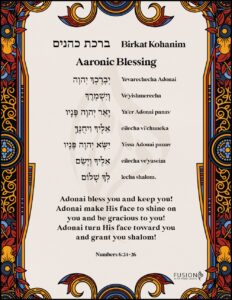 ברכת כהנים Birkat Kohanim
Aaronic Blessing
יְבָרֶכְךָ יְהוָה Yevarechecha Adonai
וְיִשְׁמְרֶךָ Ve'yishmerecha
יָאֵר יְהוָה פָּנָיו Ya'er Adonai panav
אֵלֶיךָ וִיחֻנֶּךָּ eilecha vi'chuneka
יִשָּׂא יְהוָה פָּנָיו Yissa Adonai panav
אֵלֶיךָ וְיָשֵׂם eilecha ve'yaseim
לְךָ שָׁלוֹם lecha shalom.
Adonai bless you and keep you!
Adonai make His face to shine on
you and be gracious to you!
Adonai turn His face toward you
and grant you shalom!
Numbers 6:24-26
FUSION